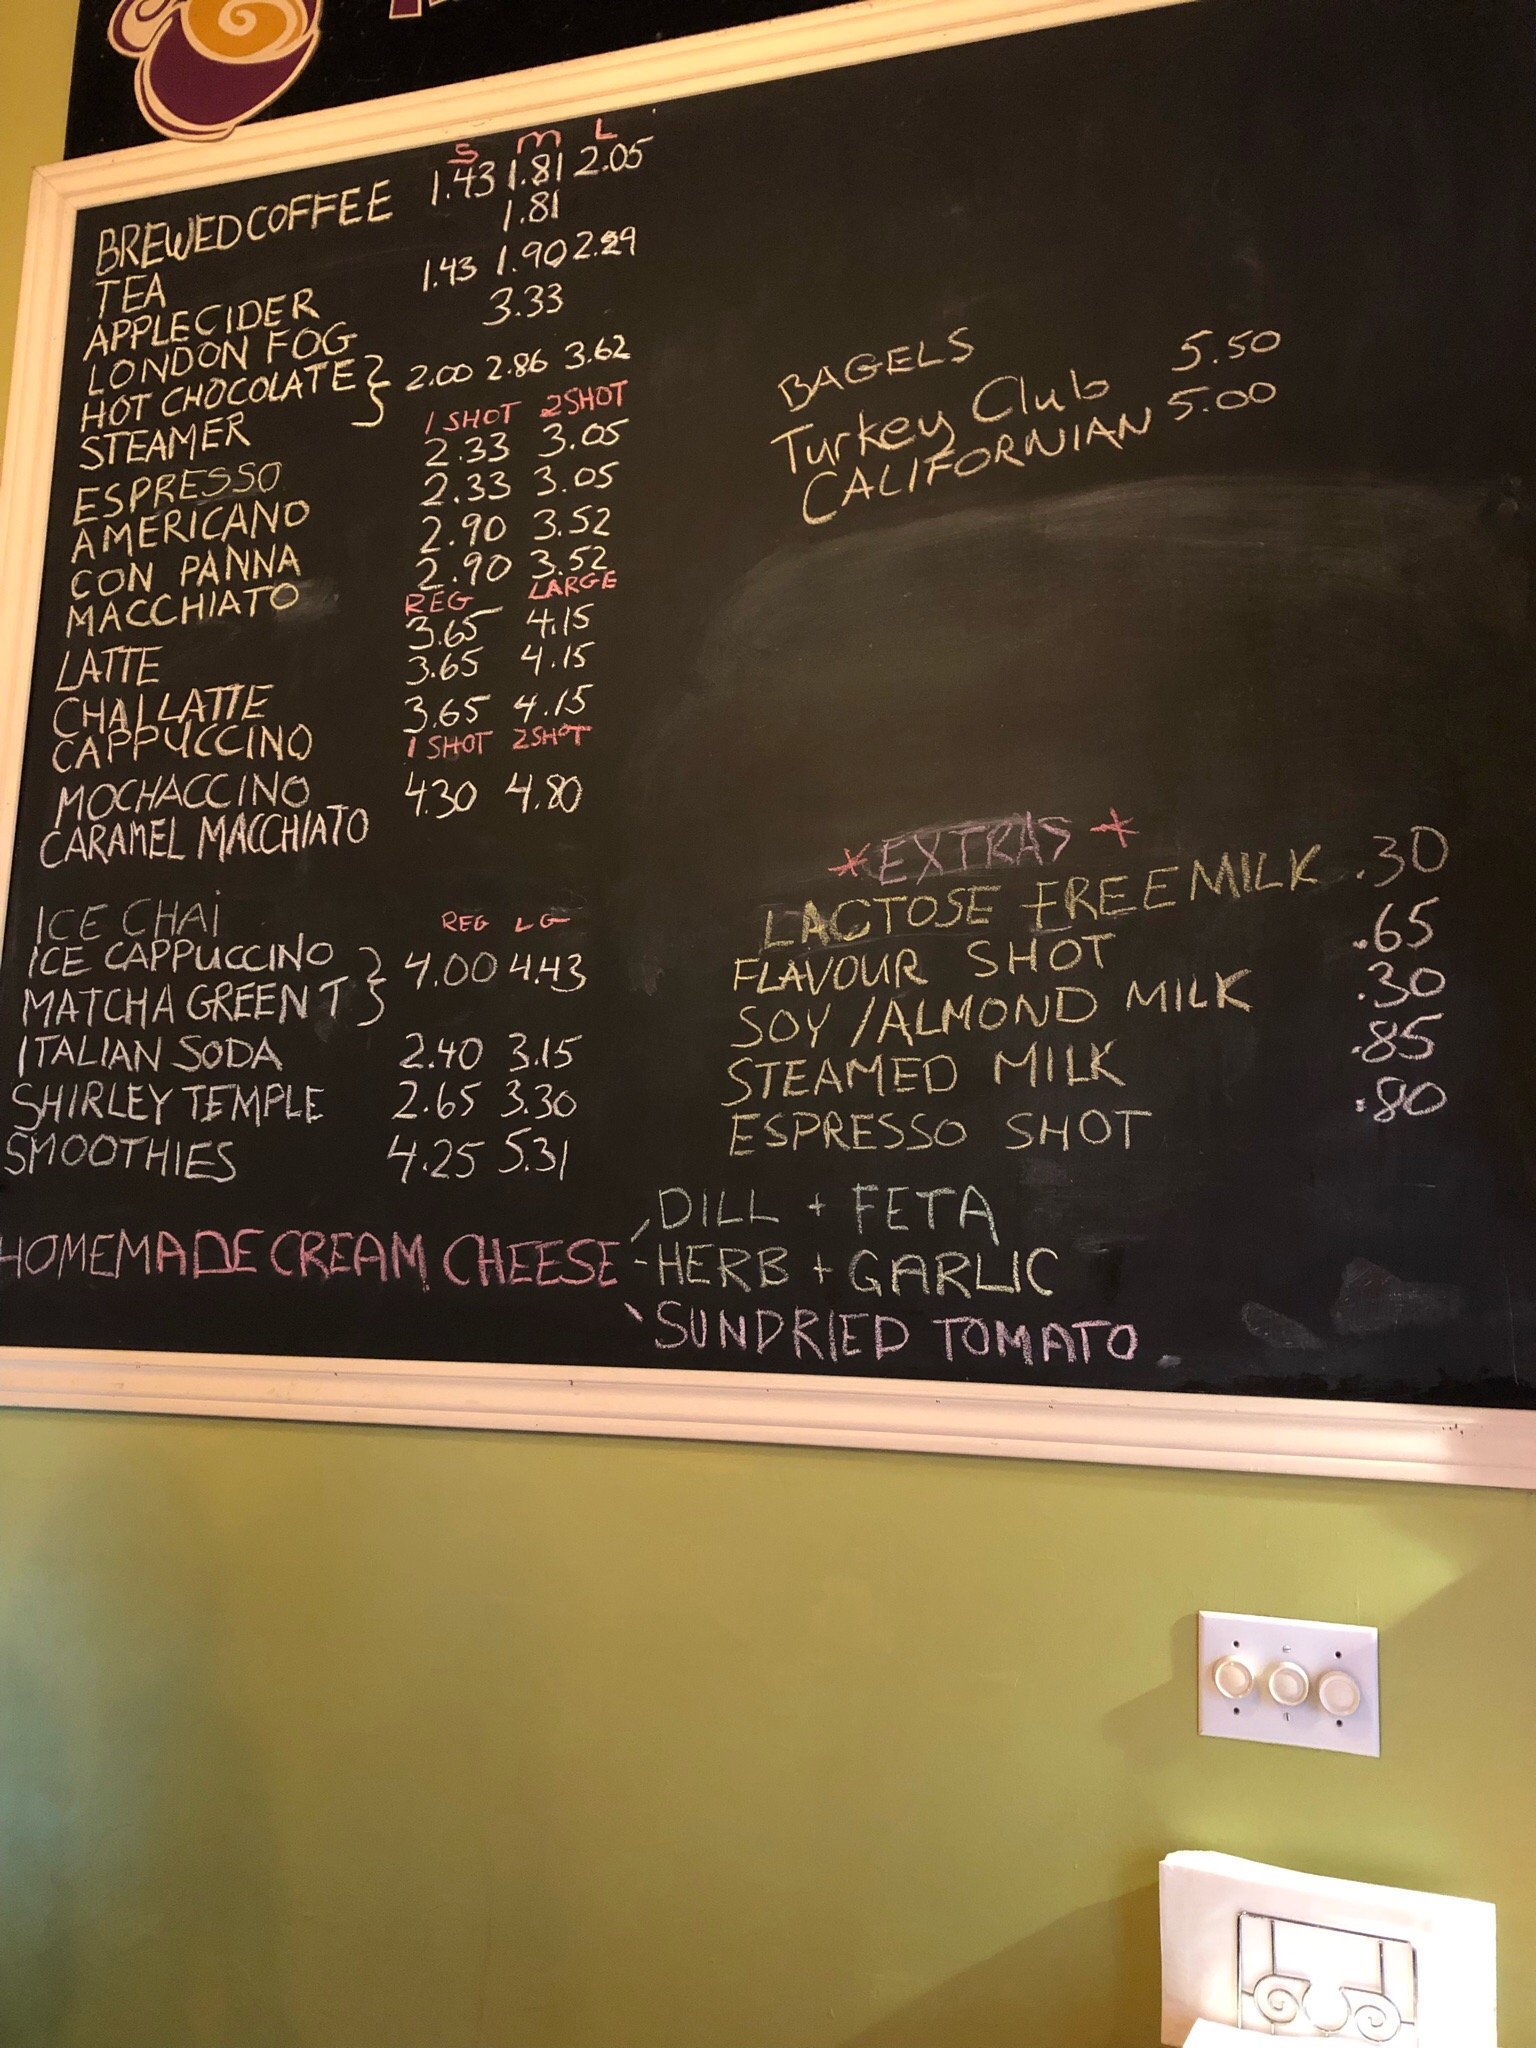 S M L
BREWED COFFEE 1.43 1.81 2.05
TEA 1.81
APPLE CIDER 1.43 1.90 2.29
LONDON FOG 3.33
HOT CHOCOLATE } 2.00 2.86 3.62
STEAMER
1 SHOT 2 SHOT
ESPRESSO 2.33 3.05
AMERICANO 2.33 3.05
CON PANNA 2.90 3.52
MACCHIATO 2.90 3.52
REG LARGE
LATTE 3.65 4.15
CHAI LATTE 3.65 4.15
CAPPUCCINO 3.65 4.15
1 SHOT 2 SHOT
MOCHACCINO 4.30 4.80
CARAMEL MACCHIATO
REG LG
ICE CHAI
ICE CAPPUCCINO } 4.00 4.43
MATCHA GREEN T
ITALIAN SODA 2.40 3.15
SHIRLEY TEMPLE 2.65 3.30
SMOOTHIES 4.25 5.31
BAGELS
Turkey Club 5.50
CALIFORNIAN 5.00
*EXTRAS*
LACTOSE FREE MILK .30
FLAVOUR SHOT .65
SOY /ALMOND MILK .30
STEAMED MILK .85
ESPRESSO SHOT .80
HOMEMADE CREAM CHEESE
DILL + FETA
- HERB + GARLIC
SUNDRIED TOMATO